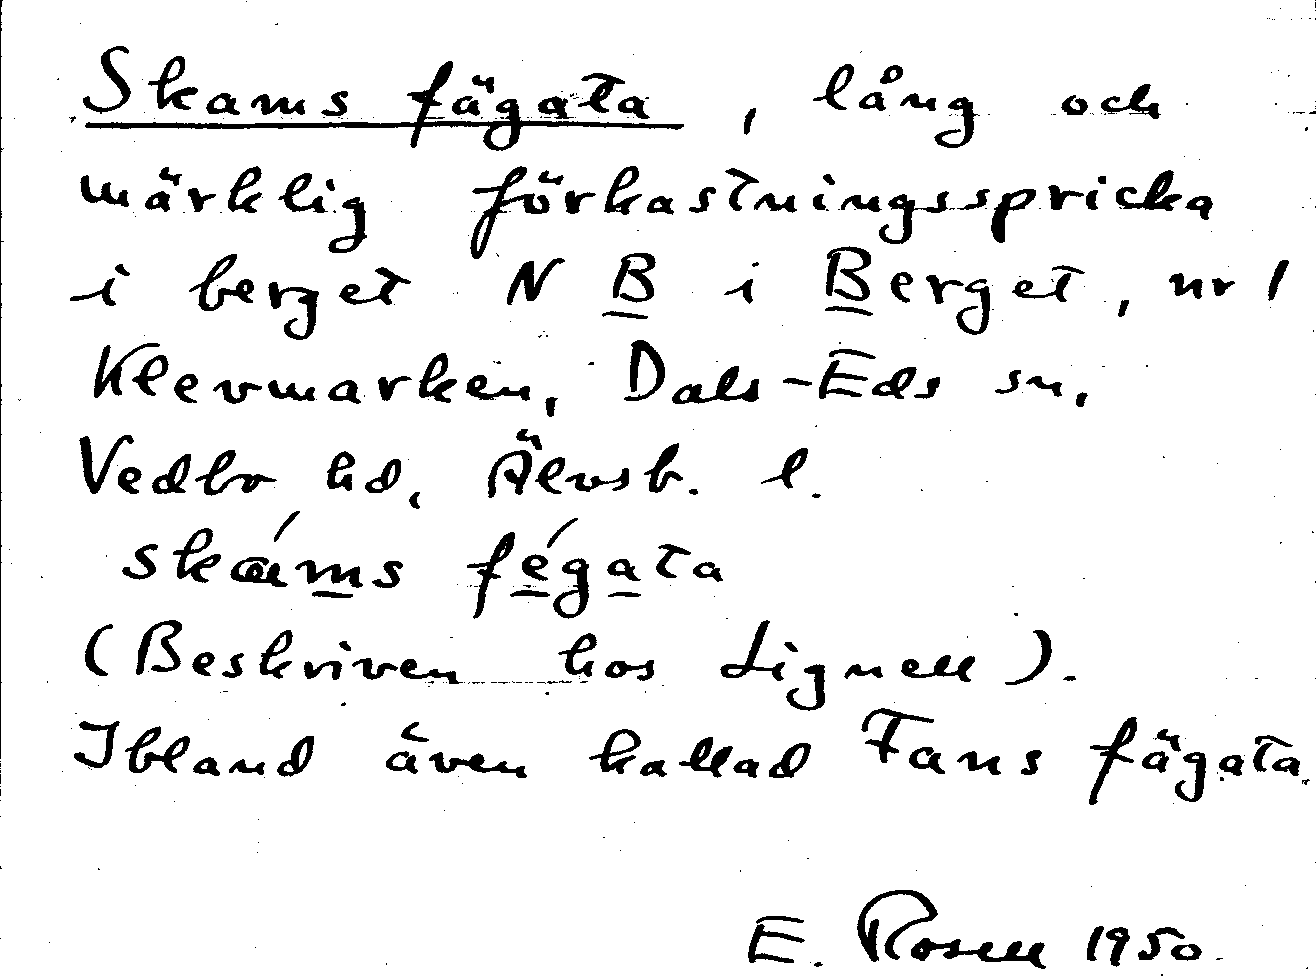 Skams fägata, lång och
märklig förkastningsspricka
i berget N B i Berget, nr 1
Klevmarken, Dals-Eds sn,
Vedbo hd, Älvsb. l.
skáms fégata
(Beskriven hos Lignell).
Ibland även kallad Fans fägata.
E. Rosell 1950.